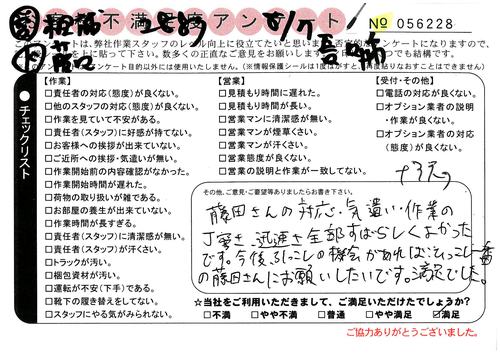 不満足度アンケート
№ 056228
このアンケートは、弊社作業スタッフのレベル向上に役立てたいと思います。
チェックリスト
【作業】
□責任者の対応(態度)が良くない。
□他のスタッフの対応(態度)が良くない。
□作業を見ていて不安がある。
□責任者(スタッフ)に好感が持てない。
□お客様への挨拶が出来ていない。
□ご近所への挨拶・気遣いが無い。
□作業開始前の内容確認がなかった。
□作業開始時間が遅れた。
□荷物の取り扱いが雑である。
□お部屋の養生が出来ていない。
□作業時間が長すぎる。
□責任者(スタッフ)に清潔感が無い。
□責任者(スタッフ)が汗くさい。
□トラックが汚い。
□梱包資材が汚い。
□運転が不安(下手)である。
□靴下の履き替えをしてない。
□スタッフにやる気がみられない。
【営業】
□見積もり時間に遅れた。
□見積もり時間が長い。
□営業マンに清潔感が無い。
□営業マンが煙草くさい。
□営業マンが汗くさい。
□営業態度が良くない。
□営業の説明と作業が一致してない。
【受付・その他】
□電話の対応が良くない。
□オプション業者の説明
・作業が良くない。
□オプション業者の対応
(態度)が良くない。
その他、ご意見・ご要望等ありましたらお書き下さい。
藤田さんの対応・気遣い・作業の
丁寧さ・迅速さ全部すばらしくよかった
です。今後引っこしの機会があればひっこし一番
の藤田さんにお願いしたいです。満足でした。
☆当社をご利用いただきまして、ご満足いただけたでしょうか?
□不満 □やや不満 □普通 □やや満足 ☑満足
ご協力ありがとうございました。